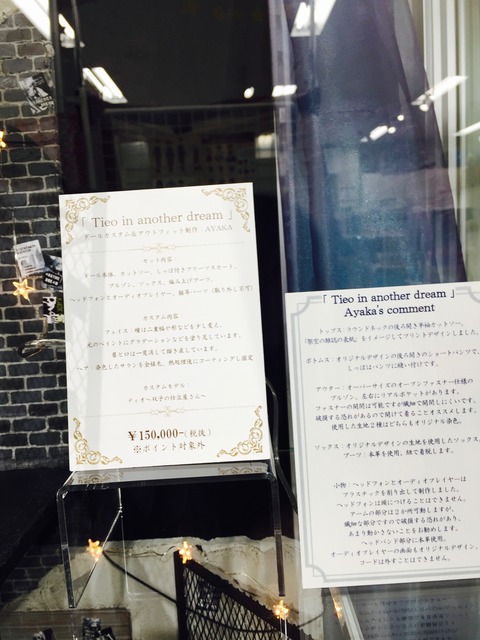 「 Tieo in another dream 」
ドールカスタム&アウトフィット制作 AYAKA
セット内容
ドール本体、カットソー、しっぽ付きフリーツスカート、
ブルゾン、ソックス、編み上げブーツ、
ヘッドフォンとオーディオプレイヤー、猫耳パーツ(取り外し不可)
カスタム内容
フェイス：瞳は二重幅や形などを少し変え、
元のペイントにグラデーションなどを塗り足しています。
眉と口は一度消して描き直しています。
ヘア：染色したサランを全植毛、熱処理後にコーティングし固定
カスタムモデル
ティオ～双子の仕立屋さん～
¥150,000-(税抜)
※ポイント対象外
「 Tieo in another dream 」
Ayaka's comment
トップス：ラウンドネックの後ろ開き半袖カットソー。
「架空の雑誌の表紙」をイメージしてプリントデザインしました。
ボトムス：オリジナルデザインの後ろ開きのショートパンツで、
しっぽはパンツに縫い付けです。
アウター：オーバーサイズのオープンファスナー仕様の
ブルゾン。左右にリアルポケットがあります。
ファスナーの開閉は可能ですが繊細で開閉しにくいです。
破損する恐れがあるので開けて着ることをオススメします。
使用した生地２種はどちらもオリジナル染色。
ソックス：オリジナルデザインの生地を使用したソックス。
ブーツ：本革を使用。紐で着脱します。
小物：ヘッドフォンとオーディオプレイヤーは
プラスチックを削り出して制作しました。
ヘッドフォンは頭につけることはできません。
アームの部分は２か所可動しますが、
繊細な部分ですので破損する恐れがあり、
あまり動かさないことをお勧めします。
ヘッドバンド部分に本革使用。
オーディオプレイヤーの画面もオリジナルデザイン。
コードは外すことはできません。